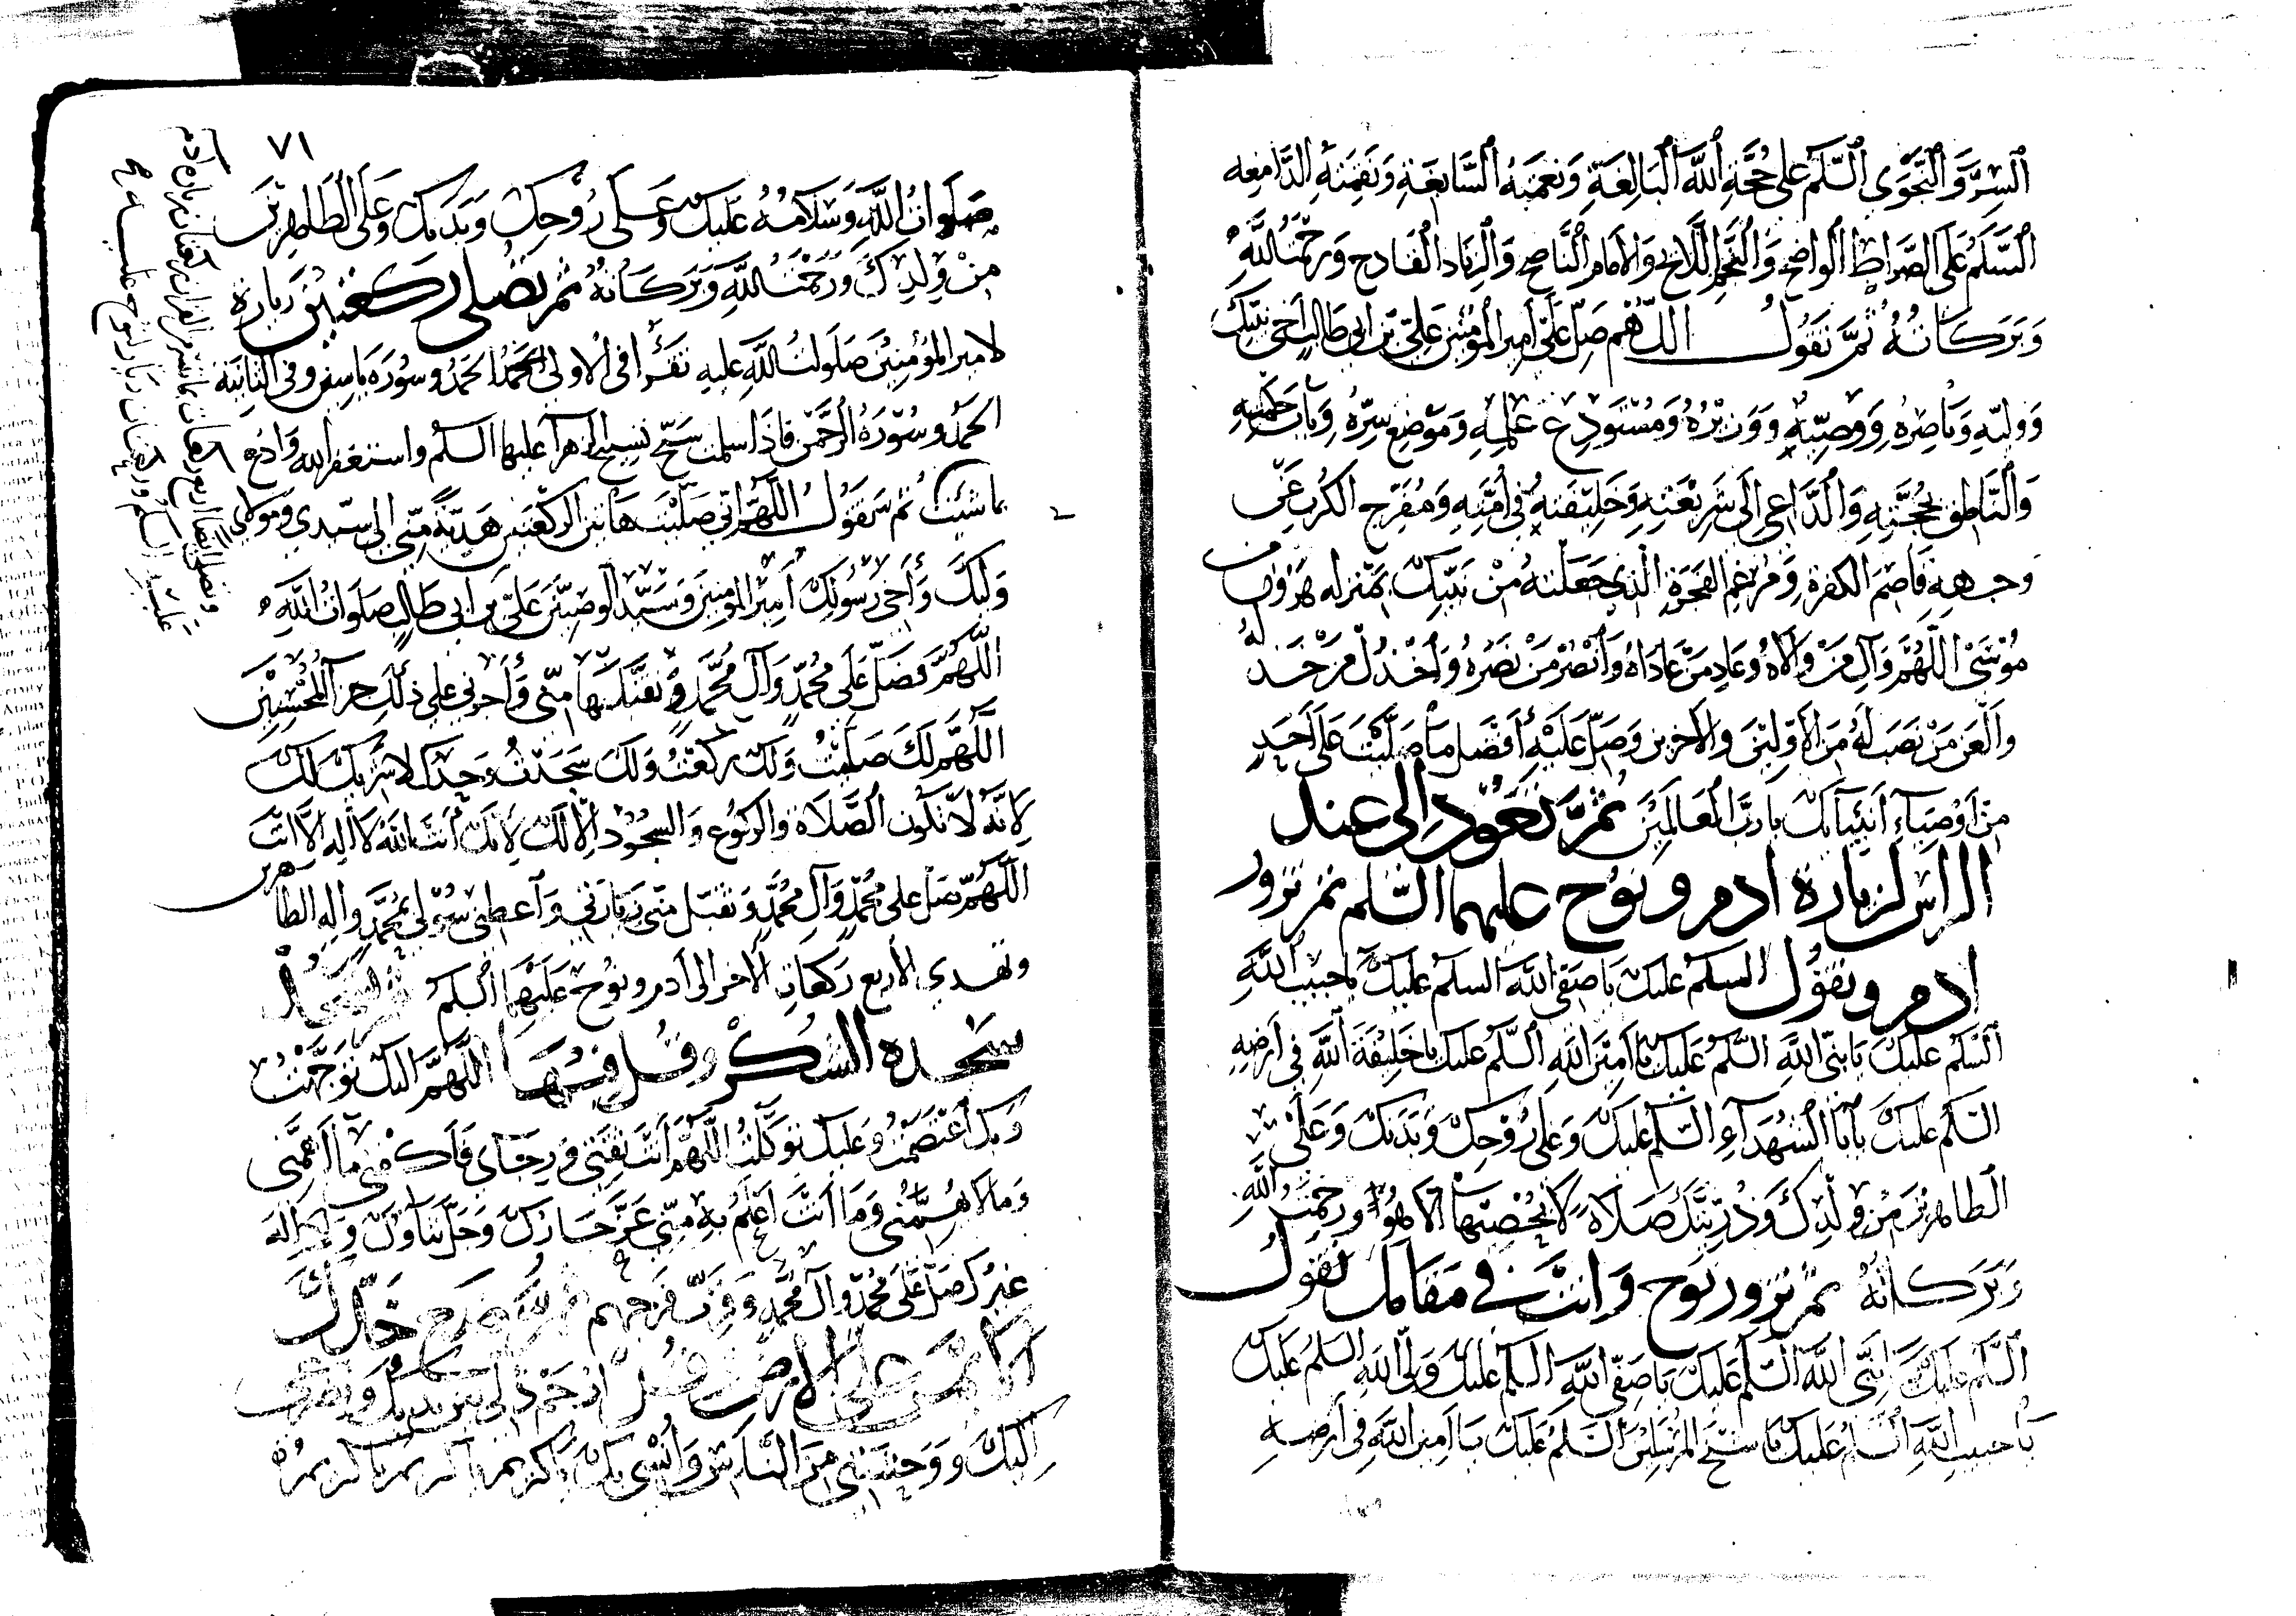 السِّرِّ وَالنَّجْوَى السَّلَمُ عَلَى حُجَّةِ اللَّهِ الْبَالِغَةِ وَنِعْمَتِهِ السَّابِغَةِ وَنِقْمَتِهِ الدَّامِغِه
السَّلَمُ عَلَى الصِّرَاطِ الْوَاضِحِ وَالنَّجْمِ اللَّائِحِ وَالْإِمَامِ النَّاصِحِ وَالزِّنَادِ الْقَادِحِ وَرَحْمَتُ اللَّهِ
وَبَرَكَاتُهُ ثُمَّ تَقُولُ اللَّهُمَّ صَلِّ عَلَى أَمِيرِ الْمُؤْمِنِينَ عَلِيِّ بْنِ أَبِي طَالِبٍ أَخِي نَبِيِّكَ
وَوَلِيِّهِ وَنَاصِرِهِ وَوَصِيِّهِ وَوَزِيرِهُ وَمُسْتَوْدَعِ عِلْمِهِ وَمَوْضِعِ سِرِّهِ وَبَابِ حِكْمَتِهِ
وَالنَّاطِقِ بِحُجَّتِهِ وَالدَّاعِي إِلَى شَرِيعَتِهِ وَخَلِيفَتِهِ فِي أُمَّتِهِ وَمُفَرِّجِ الْكَرْبِ عَنْ
وَجْهِهِ قَاصِمِ الْكَفَرَةِ وَمُرْغِمِ الْفَجَرَةِ الَّذِي جَعَلْتَهُ مِنْ نَبِيِّكَ بِمَنْزِلَه هَرُونَ مِنْ
مُوسَى اللَّهُمَّ وَالِ مَنْ وَالَاهُ وَعَادِ مَنْ عَادَاهُ وَانْصُرْ مَنْ نَصَرَهُ وَاخْذُلْ مَنْ خَذَلَهُ
وَالْعَنْ مَنْ نَصَبَ لَهُ مِنَ الْأَوَّلِينَ وَالْآخِرِينَ وَصَلِّ عَلَيْهِ أَفْضَلَ مَا صَلَّيْتَ عَلَى أَحَدٍ
مِنْ أَوْصِيَاءِ أَنْبِيَائِكَ يَا رَبَّ الْعَالَمِينَ ثُمَّ تَعُودُ إِلَى عِنْدِ
الراس لزيارة ادم ونوح عليهما السَّلم ثم تزور
ادم وتقول السلم عليك يا صفي الله السلم عليك يا حبيب الله
السَّلم عليك يا نبي الله السَّلم عليك يا امين الله السَّلم عليك يا خليفة الله في ارضه
السَّلم عليك يا ابا الشهداء السَّلم عليك وعلى روحك وبدنك وعلى
الطاهرين من ولدك وذريتك صلاة لا يحصيها الا هو ورحمت الله
وَبَرَكَاتُهُ ثم تزور نوح وانت في مقامك تقول
السَّلم عليك يا نبي الله السَّلم عليك يا صفي الله السلم عليك يا ولي الله السلم عليك
يا حبيب الله السَّلم عليك يا شيخ المرسلين السَّلم عليك يا امين الله في ارضه
٧١
صَلَوَاتُ اللَّهِ وَسَلَامُهُ عَلَيْكَ وَعَلَى رُوحِكَ وَبَدَنِكَ وَعَلَى الطَّاهِرِينَ
مِنْ وِلْدِكَ وَرَحْمَتُ اللَّهِ وَبَرَكَاتُهُ ثم تصلى ركعتين زيارة
لامير المؤمنين صلوات الله عليه تقرأ في الاولى الحمد وسورة ياسين وفي الثانية
الحمد وسورة الرحمن فاذا سلمت سبح تسبيح الزهرآ عليها السلم واستغفر الله وادع
ما شئت ثم تقول اللَّهُمَّ اني صليت هاتين الركعتين هدية مني الى سيدي ومولاي
وَلِيِّكَ وَأَخِي رَسُولِكَ أَمِيرِ الْمُؤْمِنِينَ وَسَيِّدِ الْوَصِيِّينَ عَلِيِّ بْنِ أَبِي طَالِبٍ صَلَوَاتُ اللَّهِ
اللَّهُمَّ فَصَلِّ عَلَى مُحَمَّدٍ وَآلِ مُحَمَّدٍ وَتَقَبَّلْهَا مِنِّي وَأْجُرْنِي عَلَى ذَلِكَ جَزَآءَ الْمُحْسِنِينَ
اللَّهُمَّ لَكَ صَلَّيْتُ وَلَكَ رَكَعْتُ وَلَكَ سَجَدْتُ وَحْدَكَ لَا شَرِيكَ لَكَ
لِأَنَّهُ لَا تَكُونُ الصَّلَاةُ وَالرُّكُوعُ وَالسُّجُودُ إِلَّا لَكَ لِأَنَّكَ أَنْتَ اللَّهُ لَا إِلَهَ إِلَّا أَنْتَ
اللَّهُمَّ صَلِّ عَلَى مُحَمَّدٍ وَآلِ مُحَمَّدٍ وَتَقَبَّلْ مِنِّي زِيَارَتِي وَأَعْطِنِي سُؤْلِي بِمُحَمَّدٍ وَآلِهِ الطَّاهِرِينَ
وتهدي الاربع ركعات الاخر الى ادم ونوح عليهما السلم ثم تسجد
سجدة الشكر وقل فيها اللَّهُمَّ اليك توجهت
وَبِكَ اعْتَصَمْتُ وَعَلَيْكَ تَوَكَّلْتُ اللَّهُمَّ أَنْتَ ثِقَتِي وَرَجَاي فَاكْفِنِي مَا أَهَمَّنِي
وَمَا لَا يُهِمُّنِي وَمَا أَنْتَ أَعْلَمُ بِهِ مِنِّي عَزَّ جَارُكَ وَجَلَّ ثَنَاؤُكَ وَلَا إِلَهَ
غَيْرُكَ صَلِّ عَلَى مُحَمَّدٍ وَآلِ مُحَمَّدٍ وَقَرِّبْ فَرَجَهُمْ ثم ضع خدك
الايمن على الارض وقل ارْحَمْ ذُلِّي بَيْنَ يَدَيْكَ وَتَضَرُّعِي
إِلَيْكَ وَوَحْشَتِي مِنَ النَّاسِ وَأُنْسِي بِكَ يَا كَرِيمُ يَا كَرِيمُ يَا كَرِيمُ